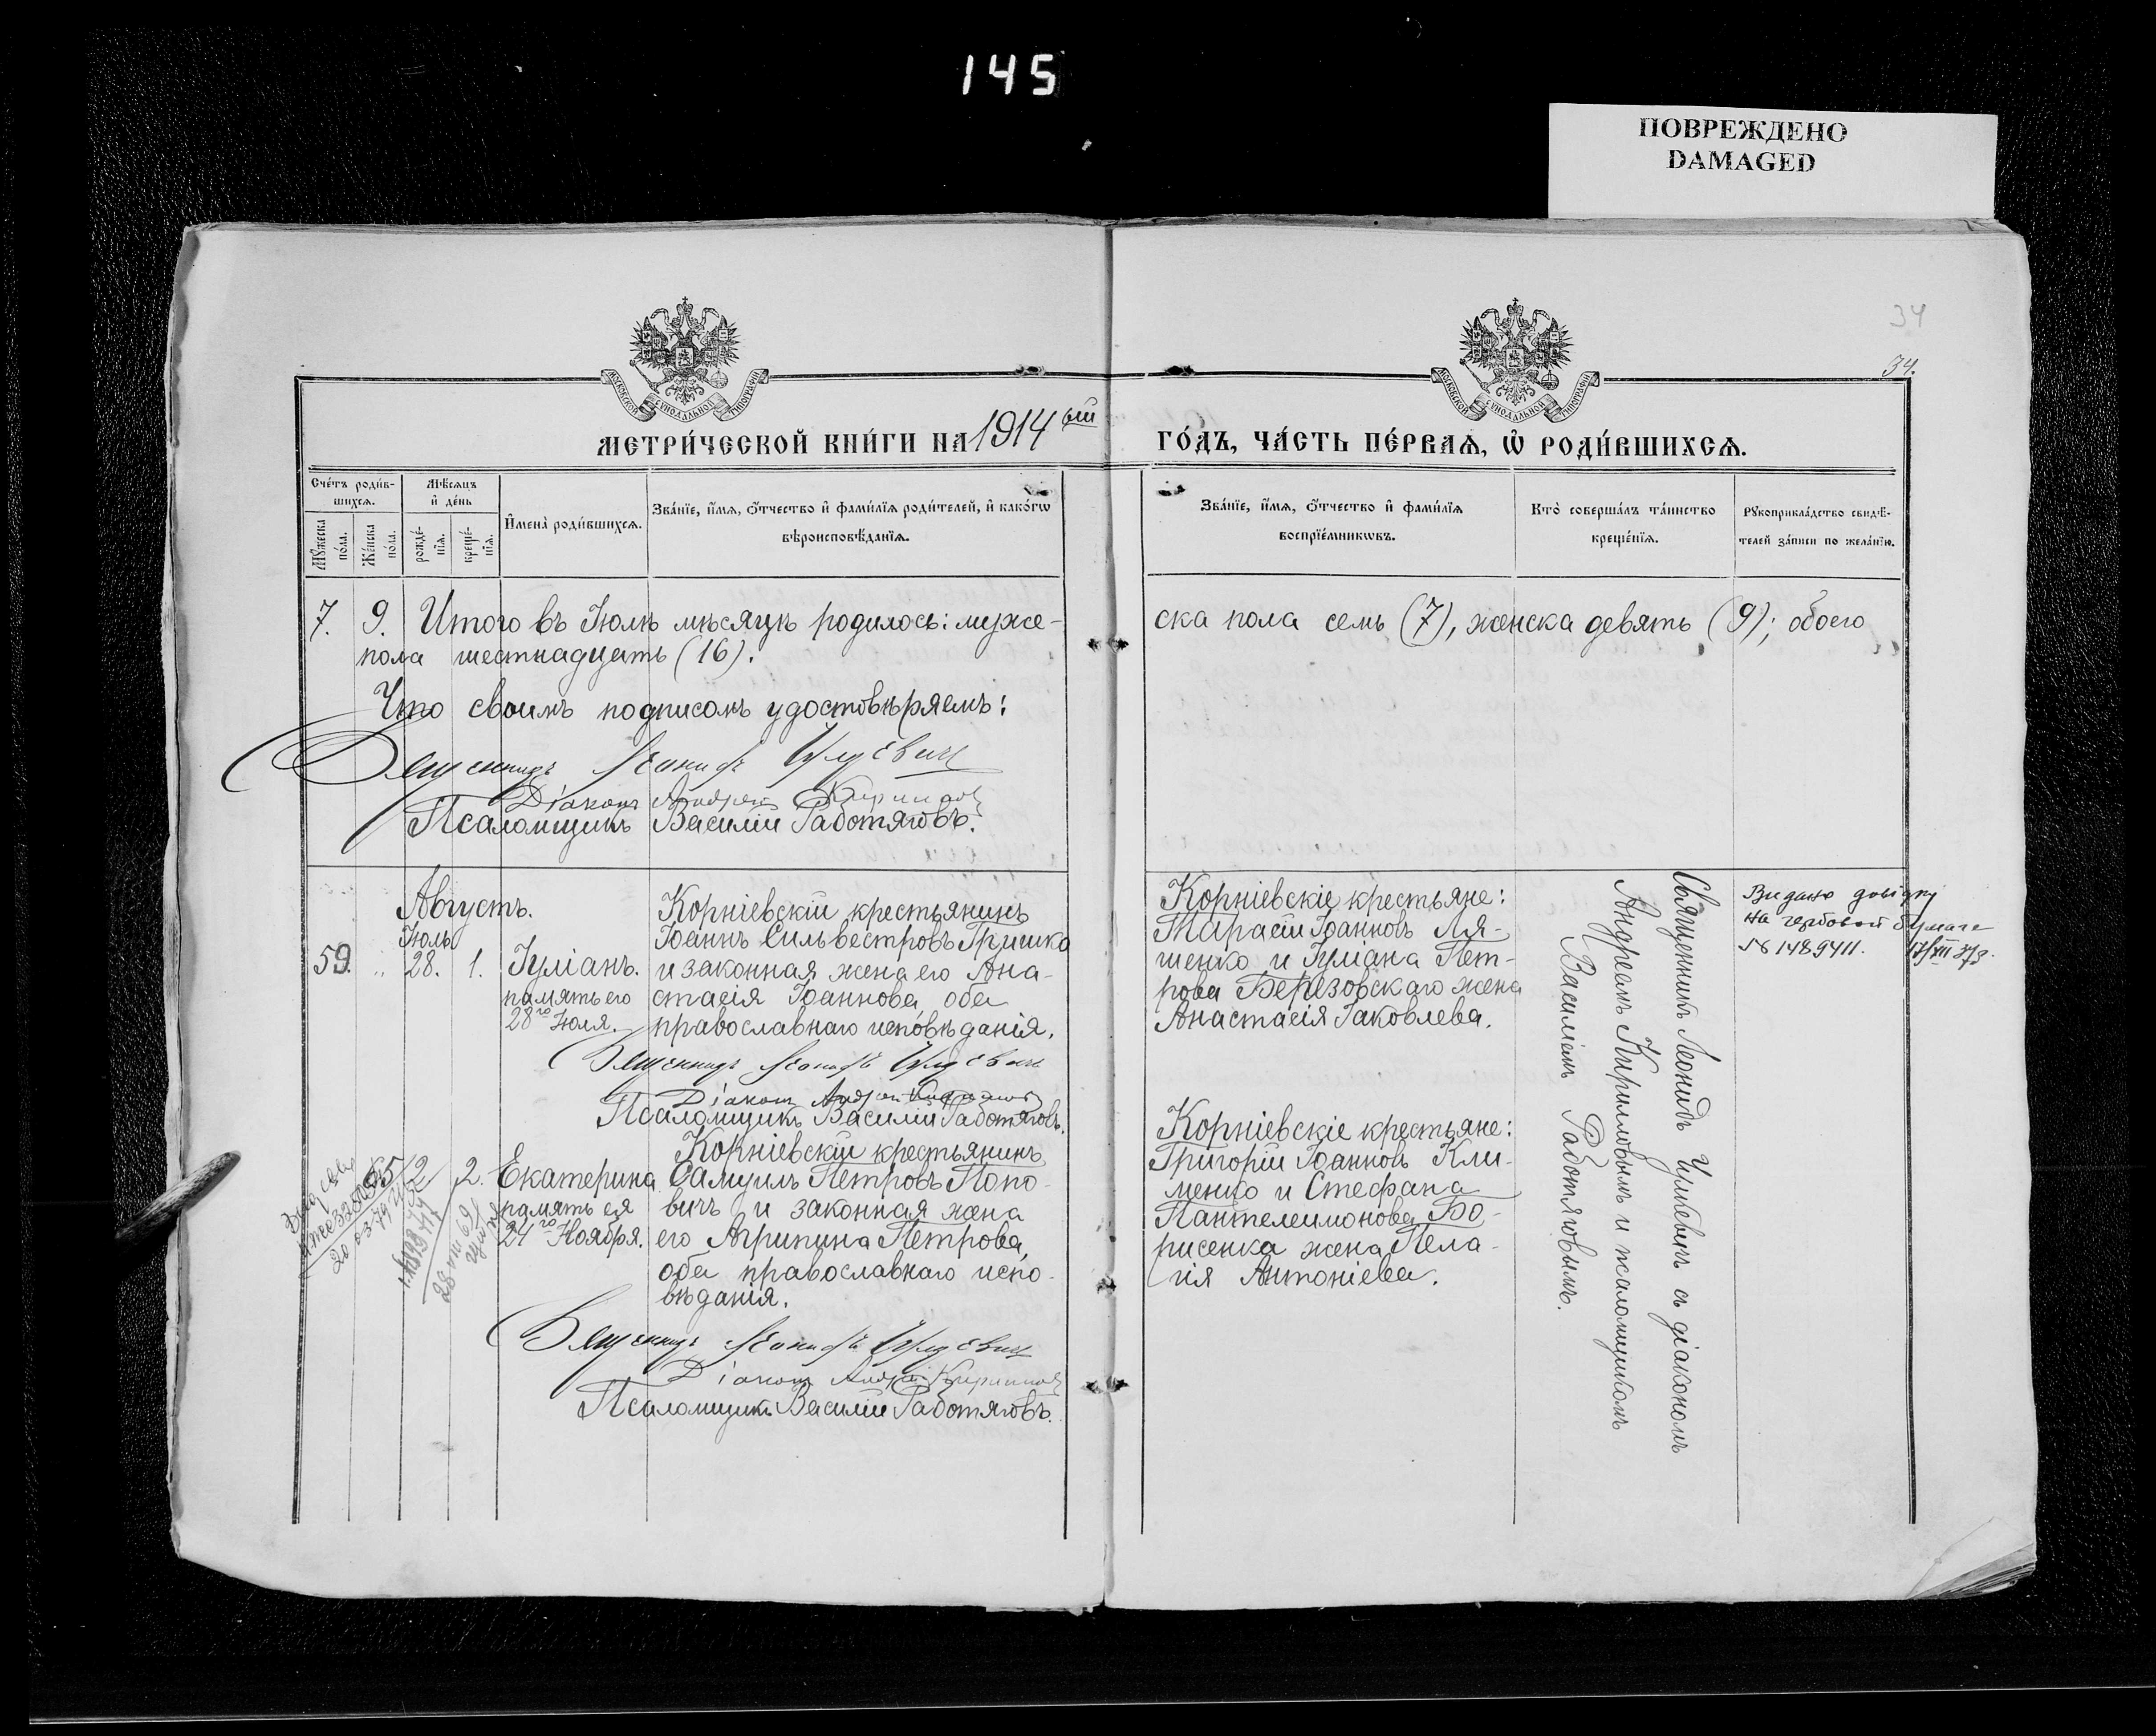 145
ПОВРЕЖДЕНО
DAMAGED
34
34.
МОСКОВСКОЙ СѴНОДАЛЬНОЙ ТИПОГРАФІИ
МОСКОВСКОЙ СѴНОДАЛЬНОЙ ТИПОГРАФІИ
МЕТРИ́ЧЕСКОЙ КНИ́ГИ НА 1914 ый
ГО́ДЪ, ЧА́СТЬ ПЕ́РВАѦ, Ѽ РОДИ́ВШИХСѦ.
Сче́тъ роди́в-
шихсѧ.
Мꙋжеска по́ла.
Же́нска по́ла.
Мѣ́сѧцъ
и҆ де́нь
рожде́-
нїѧ.
креще́-
нїѧ.
И҆мена̀ роди́вшихсѧ.
Зва́нїе, и҆́мѧ, ѻ҆́тчество и҆ фами́лїѧ роди́телей, и҆ како́гѡ
вѣроисповѣ́данїѧ.
Зва́нїе, и҆́мѧ, ѻ҆́тчество и҆ фами́лїѧ
воспрїе́мникѡвъ.
Кто̀ соверша́лъ та́инство
креще́нїѧ.
Рꙋкоприкла́дство свидѣ́-
телей за́писи по жела́нїю.
7. 9. Итого въ Іюлѣ мѣсяцѣ родилось: муже-
ска пола семь (7), женска девять (9); обоего
пола шестнадцать (16).
Что своимъ подписомъ удостовѣряемъ:
Священникъ Леонидъ
Діаконъ Андрей Кириловъ
Псаломщикъ Василій Работяговъ.
Августъ.
Іюль
59. " 28. 1. Іуліанъ.
память его
28го Іюля.
Корніевскій крестьянинъ
Іоаннъ Сильвестровъ Гришко
и законная жена его Ана-
стасія Іоаннова, оба
православнаго исповѣданія.
Священникъ Леонидъ
Діаконъ Андрей Кириловъ
Псаломщикъ Василій Работяговъ.
Корніевскіе крестьяне:
Тарасій Іоанновъ Ля-
шенко и Іуліана Пет-
рова Березовскаго жена
Анастасія Іаковлева.
Священникъ Леонидъ с діакономъ
Андреемъ Кириловымъ и псаломщикомъ
Василіемъ Работяговымъ.
Видано довідку
на гербовой бумаге
№ 1489411.
52 2. Екатерина
память ея
24го Ноября.
Корніевскій крестьянинъ
Самуилъ Петровъ Попо-
вичъ и законная жена
его Агрипина Петрова,
оба православнаго испо-
вѣданія.
Священникъ Леонидъ
Діаконъ Андрей Кириловъ
Псаломщикъ Василій Работяговъ.
Корніевскіе крестьяне:
Григорій Іоанновъ Кли-
менко и Стефана
Пантелеимонова Бо-
рисенка жена Пела-
гія Антоніева.